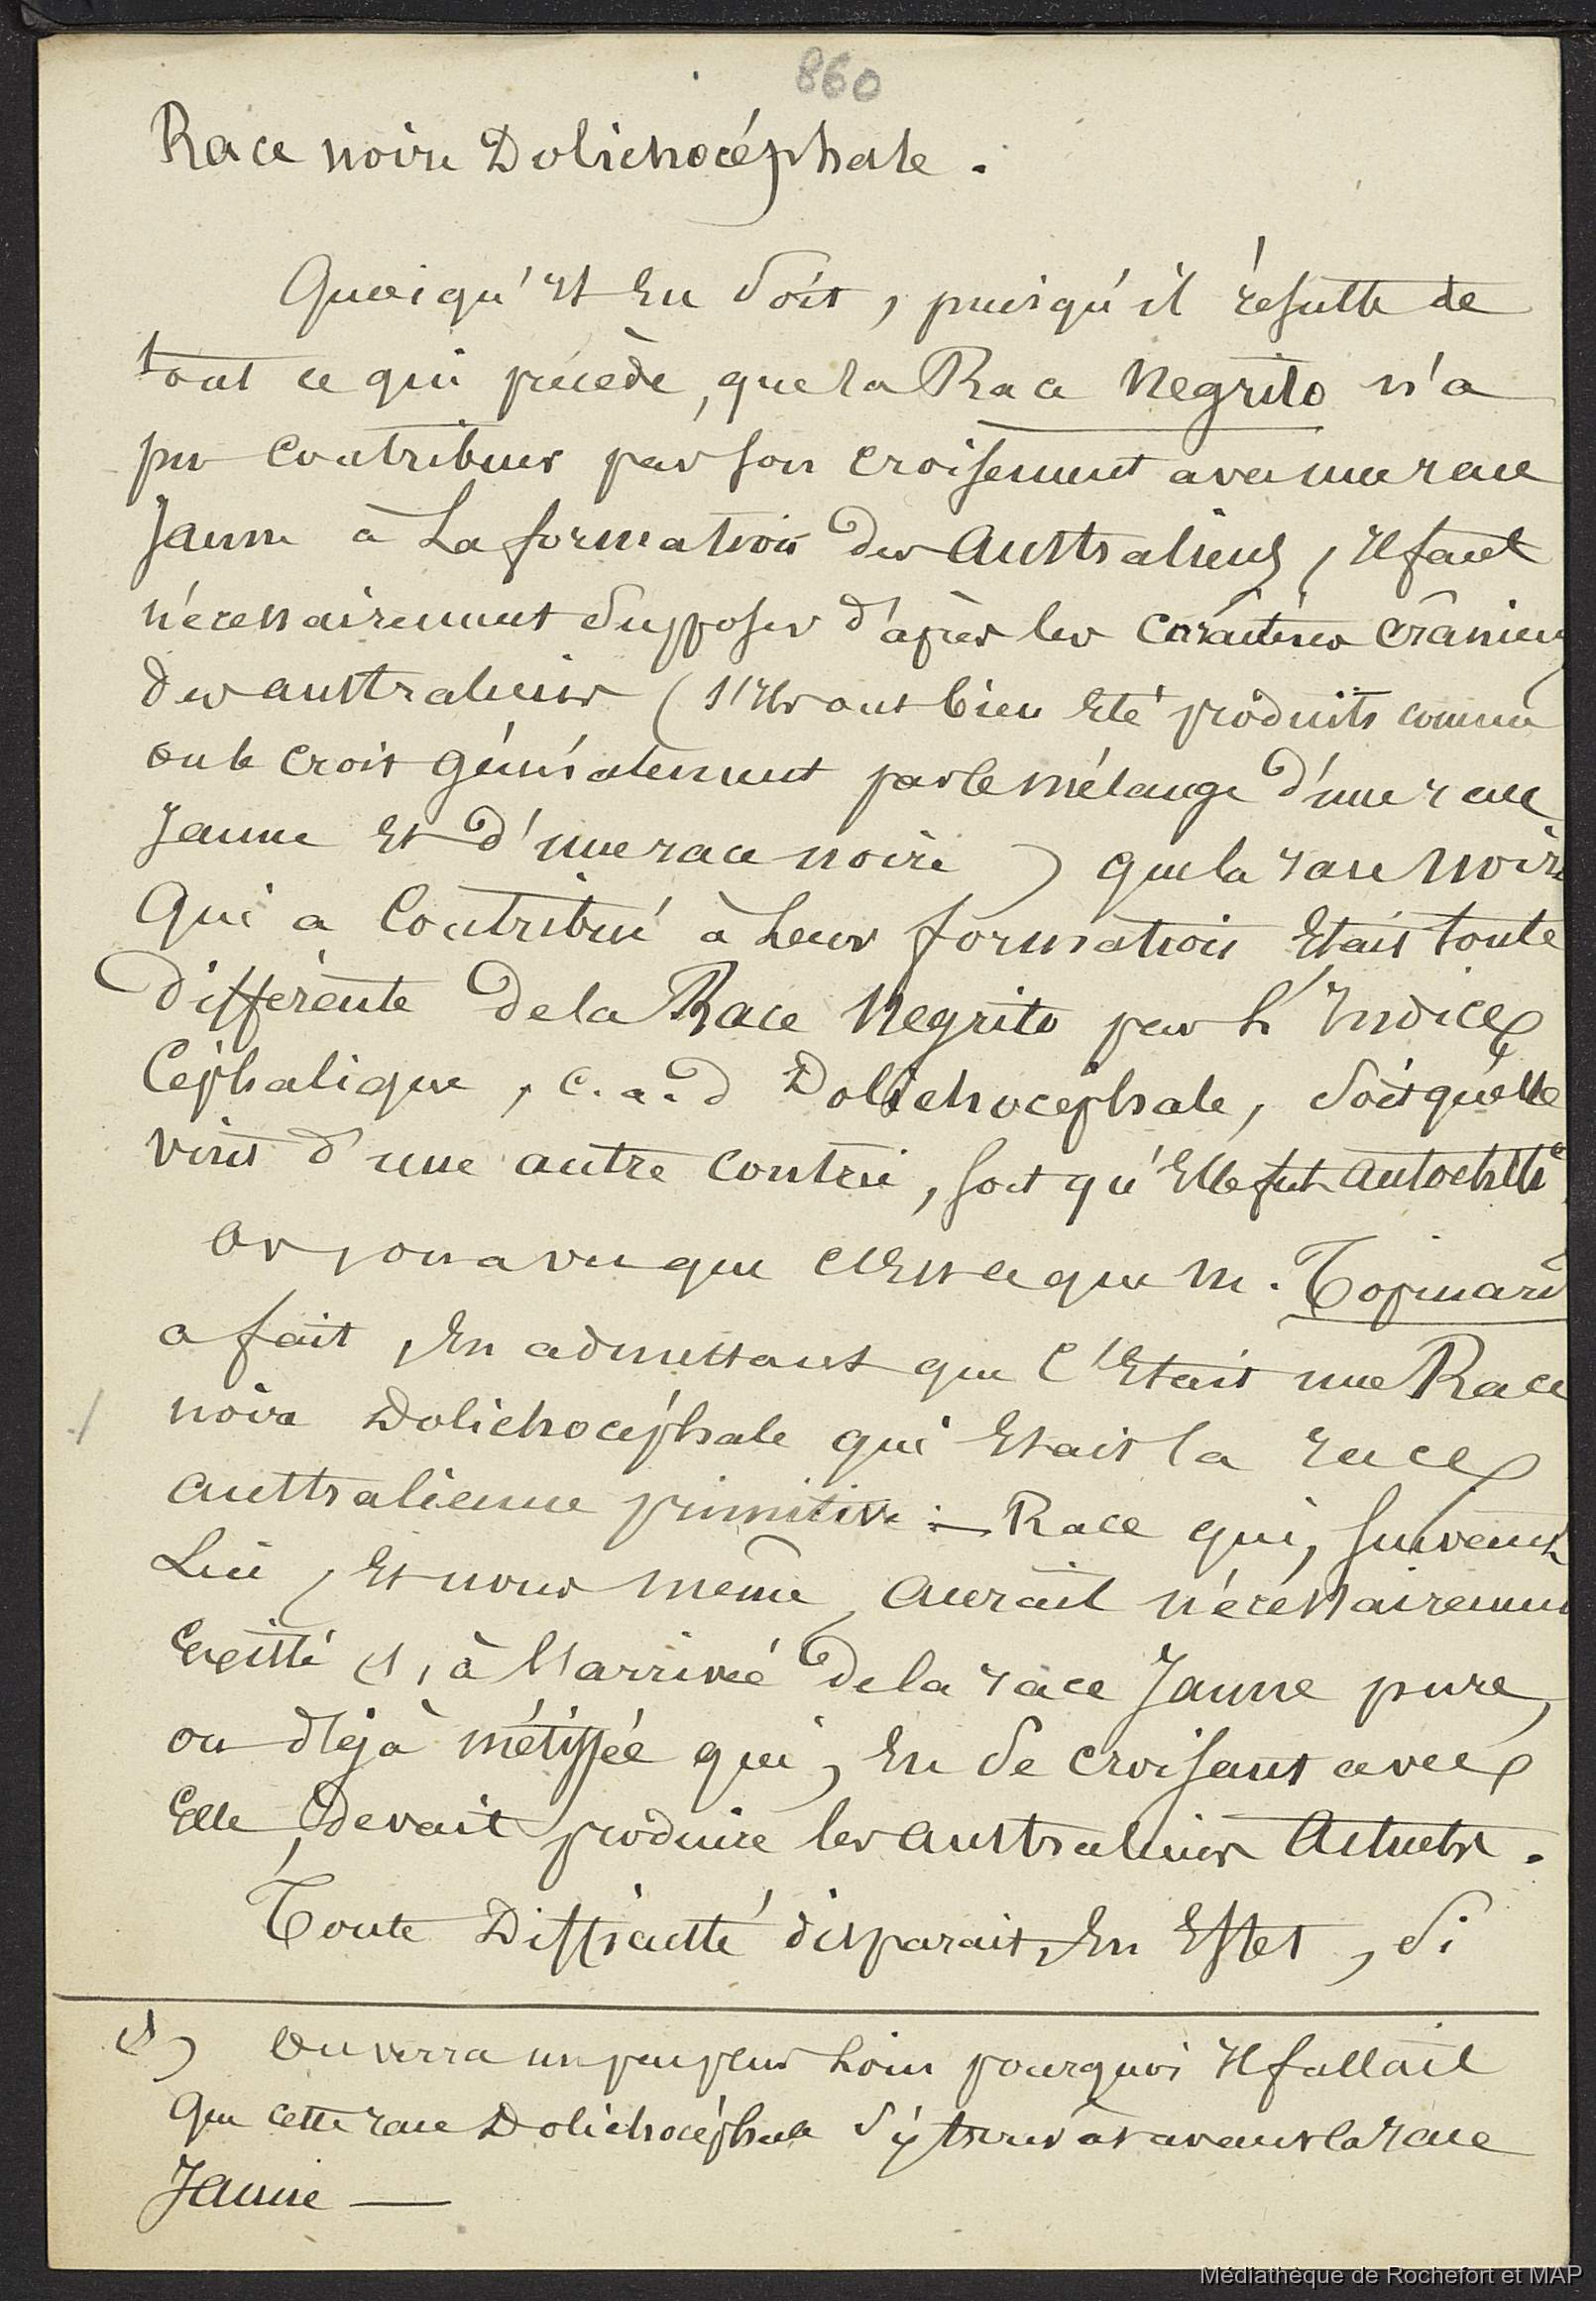 860
Race noire Dolichocéphale.
Quoiqu'il en soit, puisqu'il résulte de
tout ce qui précède, que la Race Negrito n'a
pu contribuer par son croisement avec une race
Jaune à La formation des Australiens, il faut
nécessairement supposer d'après les caractères crâniens
des australiens (s'ils ont bien été produits comme
on le croit généralement par le mélange d'une race
Jaune et d'une race noire) que la race noire
qui a contribué à Leur formation était toute
différente de la Race Negrito par L'Indice
Céphalique, c.a.d Dolichocéphale, soit qu'elle
vint d'une autre contrée, soit qu'elle fut autochthe
Or, on a vu que c'est ce que M. Topinard
a fait, en admettant que c'était une Race
noire Dolichocéphale qui était la race
australienne primitive :— Race qui, suivant
Lui, et nous même, aurait nécessairement
existé (1), à l'arrivée de la race Jaune pure,
ou déjà métissée qui, en se croisant avec
Elle, devait produire les australiens Actuels.
Toute Difficulté disparait, en Effet, si
(1) On verra un peu plus Loin pourquoi il fallait
que cette race Dolichocéphale s'y trouvât avant la race
Jaune —
Médiathèque de Rochefort et MAP